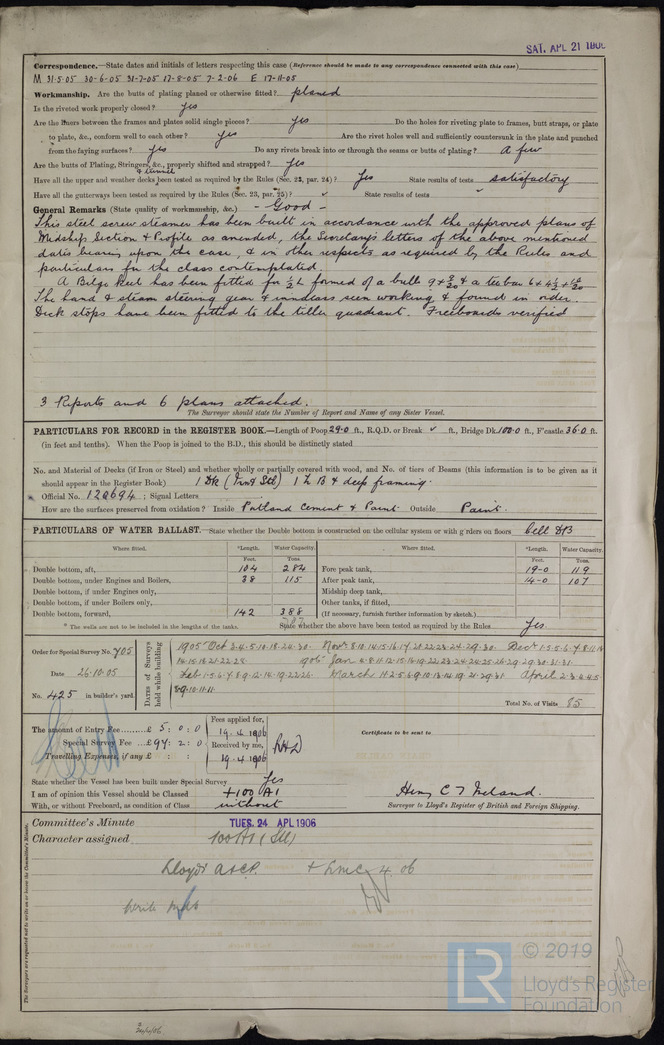 SAT. APL 21 1906
Correspondence.—State dates and initials of letters respecting this case (Reference should be made to any correspondence connected with this case)
M 31·5·05 30·6·05 31·7·05 17·8·05 7·2·06 E 17·11·05
Workmanship. Are the butts of plating planed or otherwise fitted? planed
Is the riveted work properly closed? Yes
Are the liners between the frames and plates solid single pieces? Yes Do the holes for riveting plate to frames, butt straps, or plate
to plate, &c., conform well to each other? Yes Are the rivet holes well and sufficiently countersunk in the plate and punched
from the faying surfaces? Yes Do any rivets break into or through the seams or butts of plating? A few
Are the butts of Plating, Stringers, &c., properly shifted and strapped? Yes
& tunnel
Have all the upper and weather decks been tested as required by the Rules (Sec. 23, par. 24)? Yes State results of tests satisfactory
Have all the gutterways been tested as required by the Rules (Sec. 23, par. 25)? State results of tests
General Remarks (State quality of workmanship, &c.) - Good -
This steel screw steamer has been built in accordance with the approved plans of
Midship Section & Profile as amended, the Secretary's letters of the above mentioned
dates bearing upon the case, & in other respects as required by the Rules and
particulars for the class contemplated.
A Bilge keel has been fitted for ½ L formed of a bulb 9 × 9/20 & a tee bar 6 × 4½ × 10/20
The hand & steam steering gear & windlass seen working & found in order.
Deck stops have been fitted to the tiller quadrant. Freeboards verified
3 Reports and 6 plans attached.
The Surveyor should state the Number of Report and Name of any Sister Vessel.
PARTICULARS FOR RECORD in the REGISTER BOOK.—Length of Poop 29·0 ft., R.Q.D. or Break ft., Bridge Dk. 100·0 ft., F'castle 36·0 ft.
(in feet and tenths). When the Poop is joined to the B.D., this should be distinctly stated
No. and Material of Decks (if Iron or Steel) and whether wholly or partially covered with wood, and No. of tiers of Beams (this information is to be given as it
should appear in the Register Book) 1 Dk (Stl) & deep framing.
Official No. 120694 ; Signal Letters
How are the surfaces preserved from oxidation? Inside Portland Cement & Paint Outside Paint.
PARTICULARS OF WATER BALLAST.—State whether the Double bottom is constructed on the cellular system or with girders on floors Cell DB
Where fitted. *Length. Water Capacity. Where fitted. *Length. Water Capacity.
Feet. Tons. Feet. Tons.
Double bottom, aft, 104 284 Fore peak tank, 19-0 119
Double bottom, under Engines and Boilers, 38 115 After peak tank, 14-0 107
Double bottom, if under Engines only, Midship deep tank,
Double bottom, if under Boilers only, Other tanks, if fitted,
Double bottom, forward, 142 388 (If necessary, furnish further information by sketch.)
* The wells are not to be included in the lengths of the tanks. 787 State whether the above have been tested as required by the Rules Yes
Order for Special Survey No. 705
Date 26·10·05
No. 425 in builder's yard.
Dates of Surveys held while building
1905 Oct 3·4·5·10·18·24·30· Novr 8·10·14·15·16·17·20·22·23·24·29·30· Decr 1·3·5·6·7·8·12·13
14·15·18·21·22·28· 1906 Jan 4·8·11·12·15·16·19·22·23·24·24·25·26·29·29·30·31·31·
Feb 1·5·6·7·8·9·12·14·19·22·26· March 1·1·2·5·6·9·10·13·14·19·21·29·31· April 2·3·4·4·5
8·9·10·11·11·
Total No. of Visits 85
The amount of Entry Fee £ 5 : 0 : 0 Fees applied for, 19·4·1906
Special Survey Fee £94 : 2 : 0 Received by me,
Travelling Expenses, if any £ : : 19·4·1906
Certificate to be sent to
State whether the Vessel has been built under Special Survey Yes
I am of opinion this Vessel should be Classed +100 A1
With, or without Freeboard, as condition of Class without
Henry C. T. Ireland.
Surveyor to Lloyd's Register of British and Foreign Shipping.
Committee's Minute TUES. 24 APL 1906
Character assigned 100A1 (Stl)
Lloyds A&CP. + LMC 4.06
The Surveyors are requested not to write on or below the Committee's Minute.
LR
© 2019
Lloyd's Register
Foundation